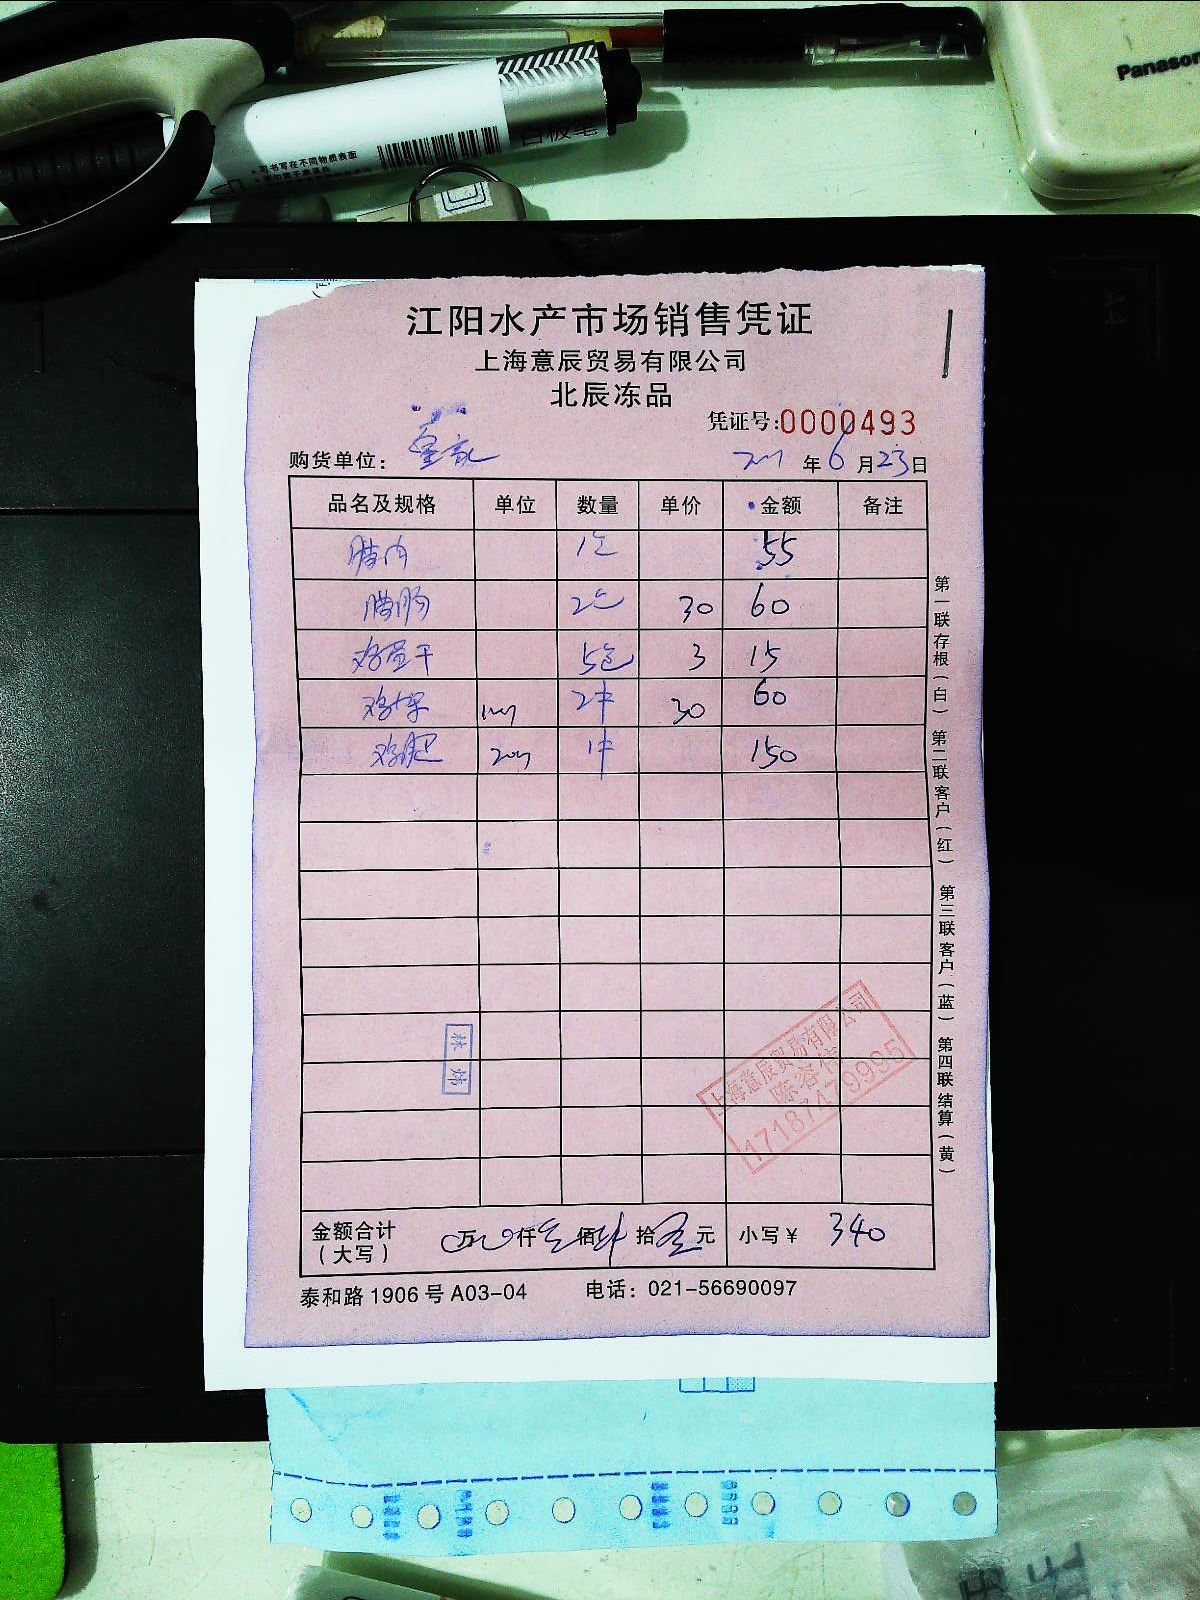 Panason
白板笔
可书写在不同物质表面
江阳水产市场销售凭证
上海意辰贸易有限公司
北辰冻品
凭证号:0000493
购货单位:
年 6 月 23 日
品名及规格 单位 数量 单价 金额 备注
腊肉 1包 55
腊肠 2包 30 60
鸡蛋干 5包 3 15
鸡架 2件 30 60
鸡肥 1件 150
第一联存根(白) 第二联客户(红) 第三联客户(蓝) 第四联结算(黄)
林炜
上海意辰贸易有限公司
陈容信
17187479995
金额合计 万 仟 叁 佰 肆 拾 元 小写¥ 340
(大写)
泰和路1906号A03-04 电话: 021-56690097